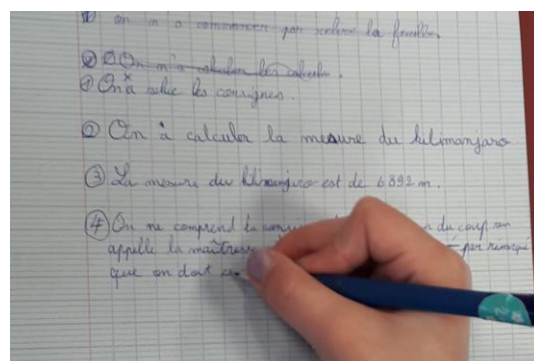 ① on m a commencer par relever la
② ① On m'a calculer les calculs.
① On a relue les consignes.
② On a calculer la mesure du kilimanjaro
③ La mesure du kilimanjaro est de 6892 m.
④ On ne comprend la du coup on
appelle la maîtresse par remarqué
que on doit